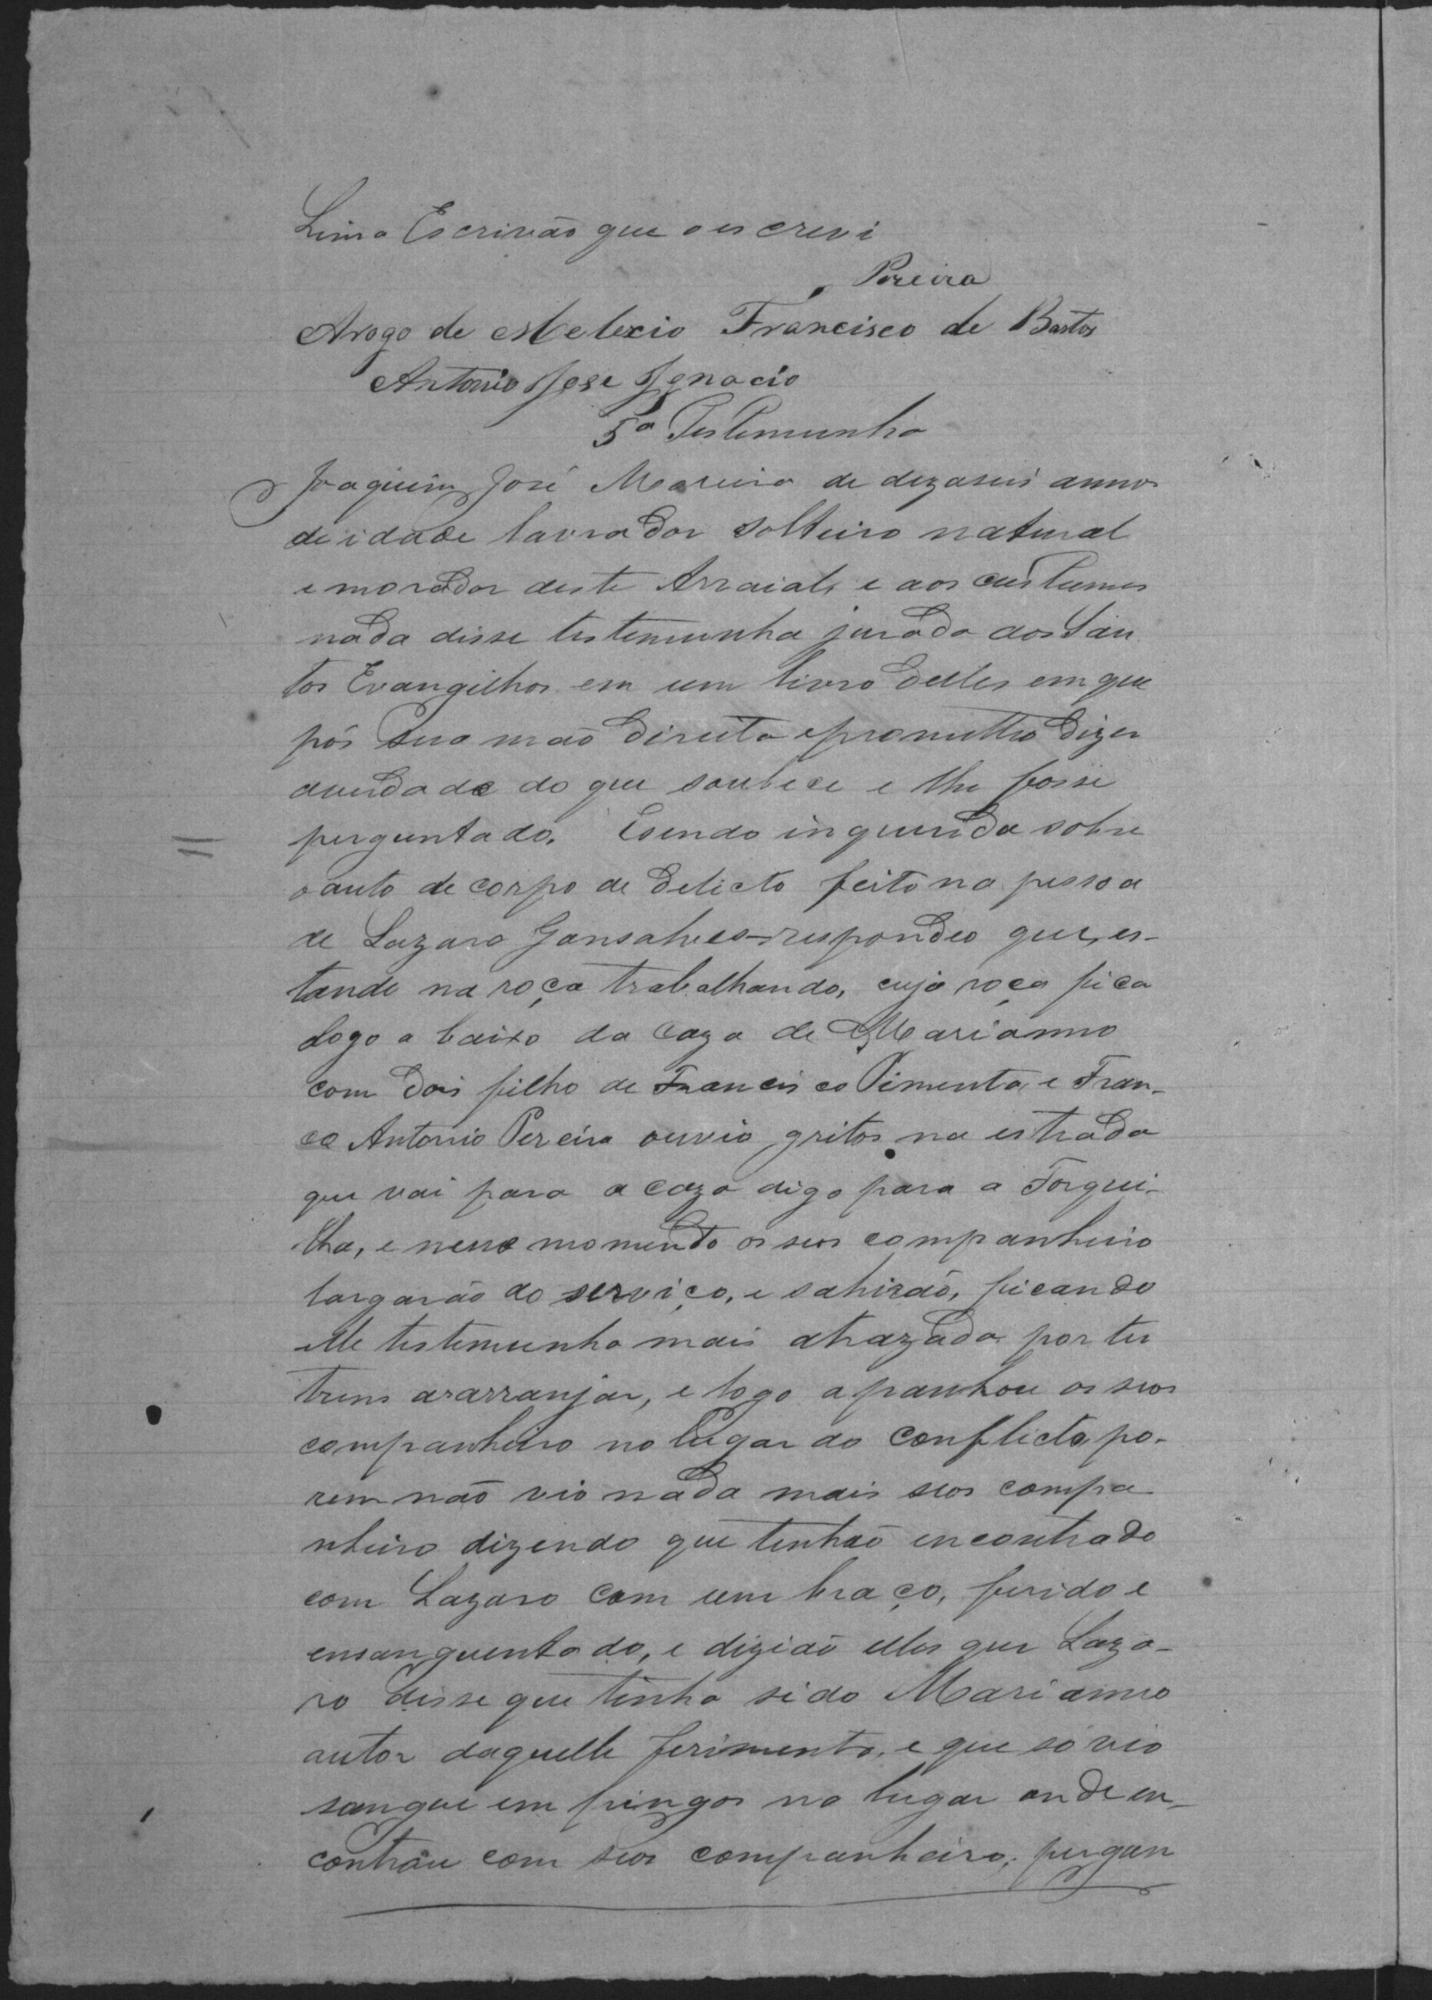 Lima Escrivão que o escrevi
Pereira
Arogo de Meletcio Francisco de Bastos
Antonio Jose Ignacio
5ª Testemunha
Joaquim José Moreira de dezaseis annos
de idade lavrador solteiro natural
e morador deste Arraial, e aos custumes
nada disse testemunha jurada aos San
tos Evangilhos em um livro delles em que
pôs sua mão direita e prometteo dizer
averdade do que soubece e lhe fosse
perguntado. Esendo inquerida sobre
o auto de corpo de delicto feito na pessoa
de Lazaro Gonsalves respondeo que, es-
tando na roça trabalhando, cuja roça fica
logo a baixo da caza de Marianno
com dois filho de Francisco Pimenta, e Fran-
co Antonio Pereira ouvio gritos na estrada
que vai para a caza digo para a Forqui-
lha, e nesse momento os seos companheiro
largarão do serviço, e sahirão, ficando
elle testemunha mais atrazada por ter
trens ararranjar, e logo apanhou os seos
companheiro no lugar do conflicto, po-
rem não vio nada mais seos compa
nheiro dizendo que tenhão encontrado
com Lazaro com um braço, ferido e
ensanguentado, e dizião elles que Laza-
ro disse que tinha sido Marianno
autor daquelle ferimento, e que só vio
sangue em pingos no lugar onde en-
controu com seos companheiro, pergun